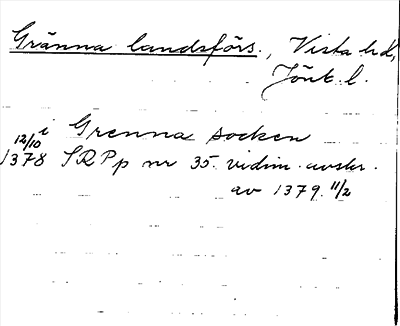 Gränna landsförs., Vista hd,
Jönk. l.
i Grenna socken
12/10 1378 SRPp nr 35. vidim. avskr.
av 1379 11/2